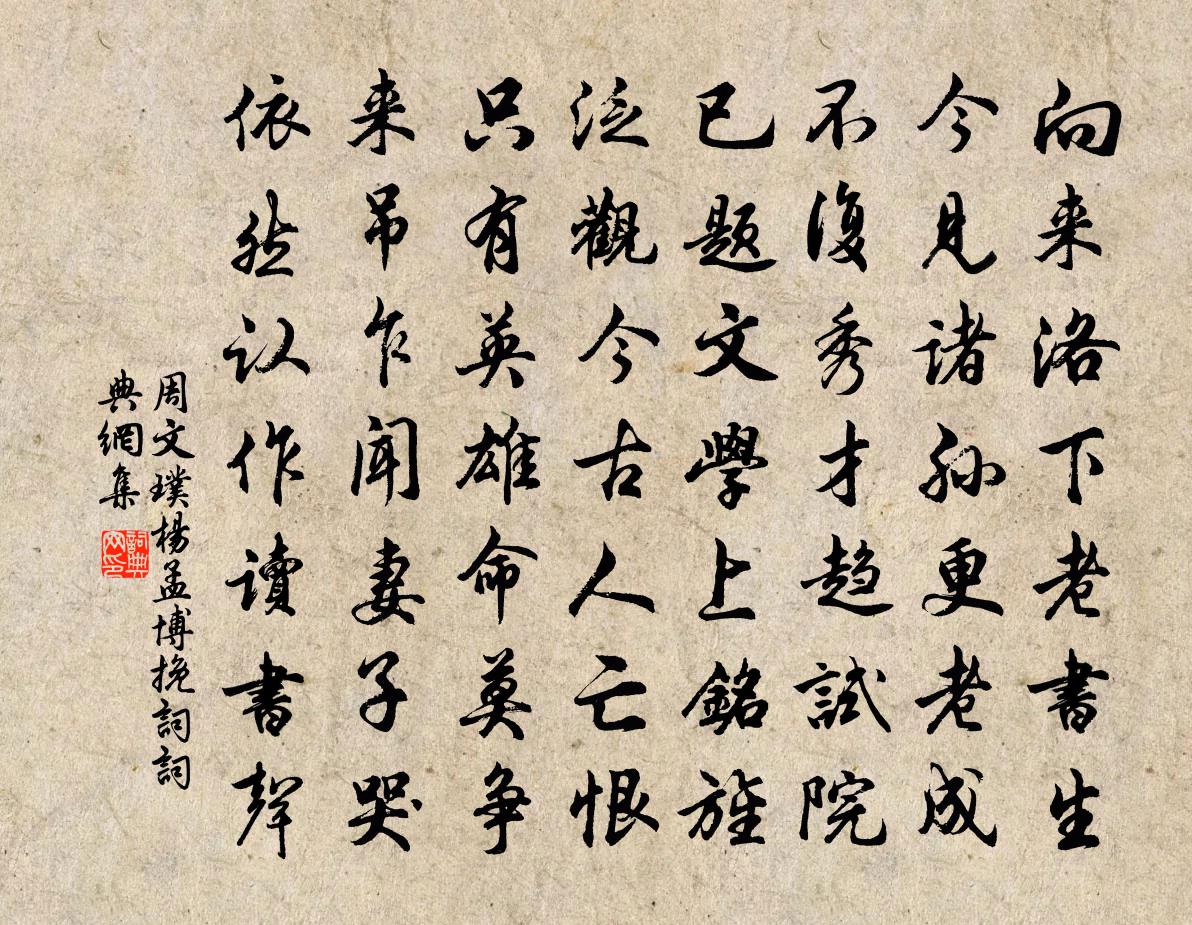 向来洛下老書生
今見諸孫更老成
不復秀才趋試院
已题文學上銘旌
泛觀今古人亡恨
只有英雄命莫争
来吊乍闻妻子哭
依然认作讀書聲
周文璞楊孟博挽詞詞
典網集
詞典
网印